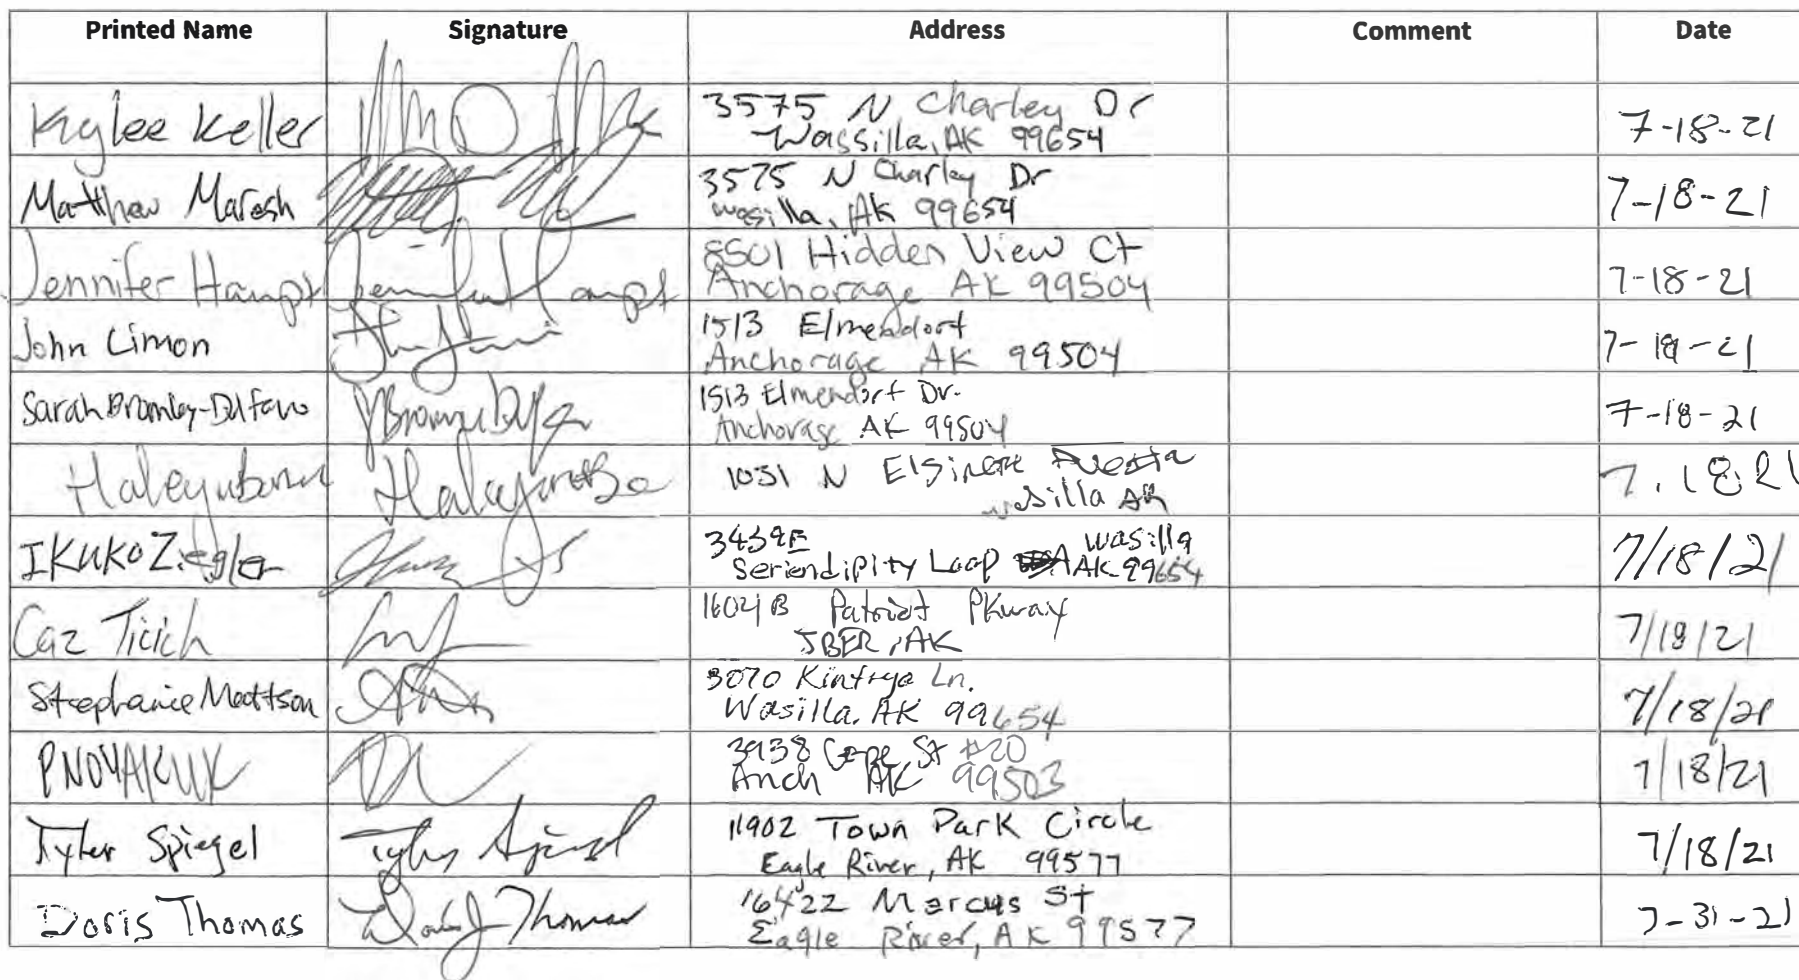 Printed Name Signature Address Comment Date
Kaylee Keller 3575 N Charley Dr
Wassilla, AK 99654 7-18-21
Matthew Marosh 3575 N Charley Dr
wasilla, AK 99654 7-18-21
Jennifer Haupt Jennifer Haupt 8501 Hidden View Ct
Anchorage AK 99504 7-18-21
John Limon 1513 Elmendorf
Anchorage AK 99504 7-18-21
Sarah Bromley- 1513 Elmendorf Dr.
Anchorage AK 99504 7-18-21
Haley 1031 N Elsinore
silla AK 7.18.21
IKUKO Ziegler 3439 E Wasilla
Seriendipity Loop AK 99654 7/18/21
Caz Ticich 16021 B Patriot PKway
JBER, AK 7/18/21
Stephanie Mattson 3070 Kintrye Ln.
Wasilla, AK 99654 7/18/21
3938 Cope St #20
Anch AK 99503 7/18/21
Tyler Spiegel Tyler Spiegel 11902 Town Park Circle
Eagle River, AK 99577 7/18/21
Doris Thomas Doris J Thomas 16422 Marcus St
Eagle River, AK 99577 7-31-21